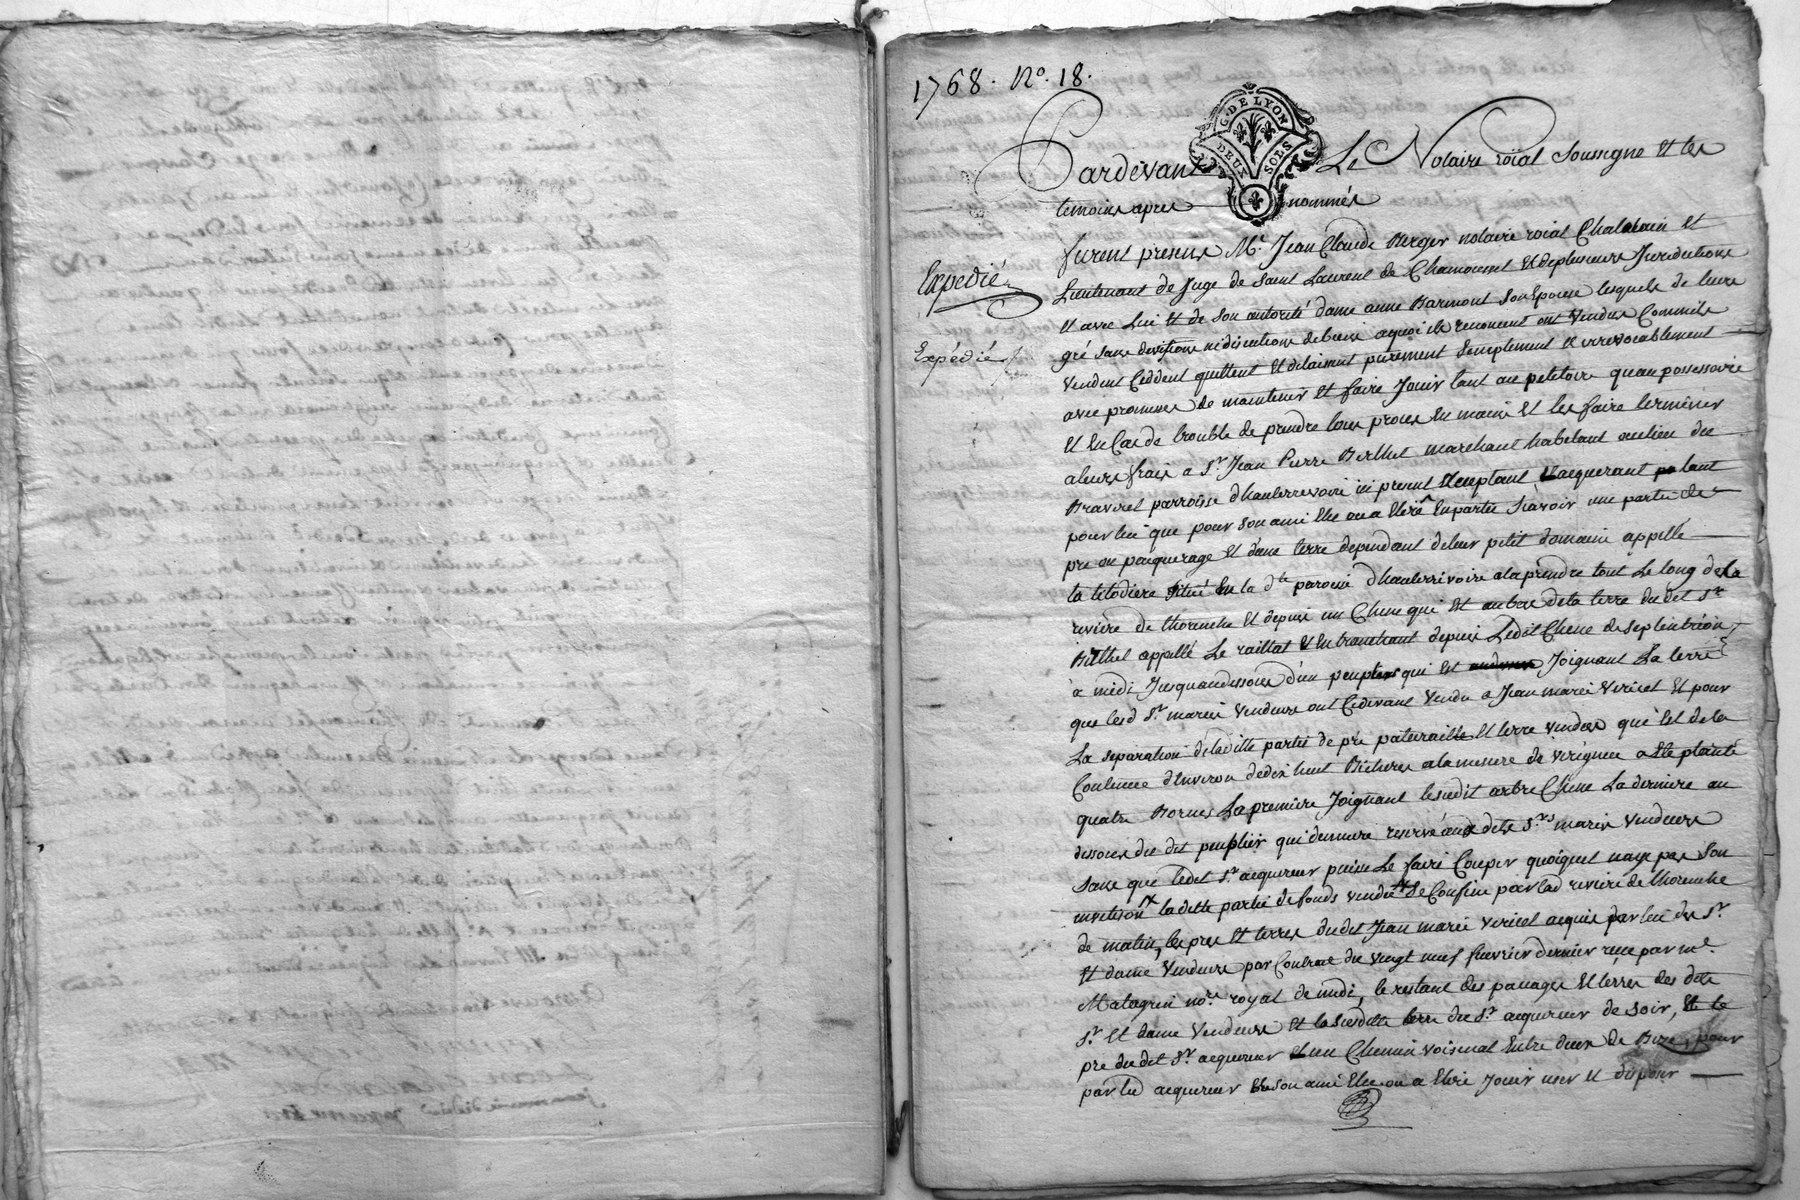 1768. No. 18.
G. DE LYON
DEUX SOLS
Pardevant Le Notaire roïal soussigné et les
temoins apres nommés
furent presens Mr. Jean Claude Berger notaire roial Chatelain et
Expedié
Lieutenant de Juge de Saint Laurent de Chamousset et de plusieurs Juridictions
et avec lui et de son autorité dame anne Barmont son Epouse lesquels de leurs
Expédié
gré sans division ni discution de biens aquoi ils renoncent ont vendus Comme ils
vendent Ceddent quittent et delaissent purement simplement et irrevocablement
avec promesses de maintenir et faire Jouir tant au petitoire quau possessoire
et en Cas de trouble de prendre tous proces en mains et les faire terminer
aleurs frais a Sr. Jean Pierre Berthet marchant habitant au lieu du
Braviret parroisse dhauterrivoire ici present acceptant et acquerant tant
pour lui que pour son ami Elu ou a Elire En partie scavoir une partie de
pre ou paquerage et dune terre dependant de leur petit domaine appellé
la télodiere situé En la dte paroisse dhauterrivoire a la prendre tout Le long de la
riviere de thoranche et depuis un Chene qui est au bas de la terre du dit Sr.
Berthet appellé Le raillat et En tranchant depuis Ledit Chene de septentrion
à midi Jusquaudessous d'un peuplier qui est Joignant La terre
que lesd Sr. mariés vendeurs ont Cidevant vendu a Jean marie vericel et pour
La separation de la ditte partie de pré paturaille et terre vendue qui est de la
Contenue d'Environ de dix huit Bichérés a la mesure de virignieu a Eté planté
quatre Bornes La premiere Joignant le susdit arbre Chene La derniere au
dessous du dit peuplier qui demeure reservé aux dits Srs mariés vendeurs
sans que ledit Sr. acquereur puisse Le faire Couper quoiquil naye pas son
investison la ditte partie de fonds vendue se Confine par lad riviere de thoranche
de matin, les pres et terres du dit Jean marie vericel acquis par lui des Sr.
et dame vendeurs par Contract du vingt neuf fuevrier dernier reçu par me.
Matagrin nore. royal de midi, le restant des paccages et terres des dits
Sr. et dame vendeurs et la susditte terre du Sr. acquereur de soir, et le
pre du dit Sr. acquereur et un Chemin voisinal Entre deux de Bize, pour
par led acquereur et son ami Elu ou a Elire Jouir user et disposer